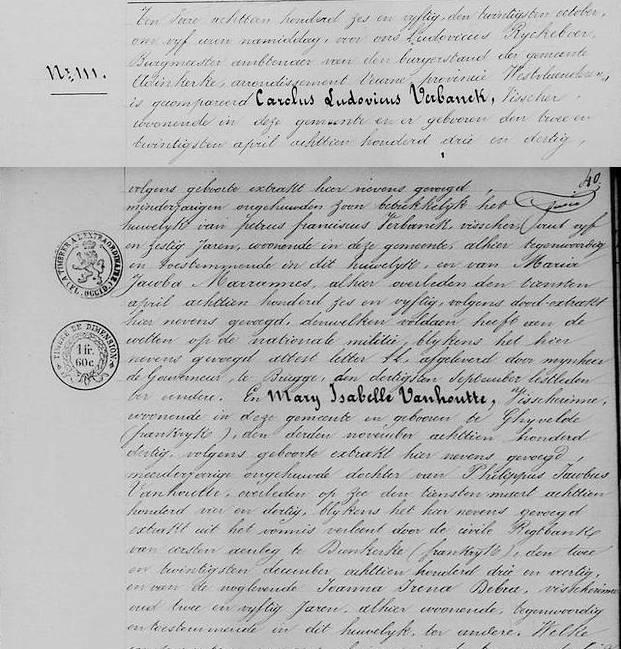 Ten Jare achttien honderd zes en vyftig, den twintigsten october,
om vyf uren namiddag, voor ons Ludovicus Ryckeboer,
Burgmeester ambtenaer van den burgerstand der gemeente
arrondissement Veurne provincie Westvlaenderen,
N: 111.
is gecompareerd Carolus Ludovicus Verbanck, visscher,
woonende in deze gemeente en er geboren den twee en
twintigsten april achttien honderd drie en dertig,
40
volgens geboorte extrakt hier nevens gevoegd,
minderjarigen ongehuwden zoon betrekkelyk het
huwelyk van petrus franciscus Verbanck, visscher, oud vyf
en zestig jaren, woonende in deze gemeente, alhier tegenwoordig
en toestemmende in dit huwelyk, en van Maria
Jacoba Marrannes, alhier overleden den tiensten
april achttien honderd zes en vyftig, volgens dood extrakt
hier nevens gevoegd, denwelken voldaen heeft aen de
wetten op de nationale militie, blykens het hier
nevens gevoegd attest letter afgeleverd door mynheer
de Gouverneur, te Brugge, den dertigsten September lestleden
ter eendere. En Mary Isabelle Vanhoutte, Visscherinne,
woonende in deze gemeente en geboren te Ghyvelde
(frankryk), den derden november achttien honderd
dertig, volgens geboorte extrakt hier nevens gevoegd,
meerderjarige ongehuwde dochter van Philippus Jacobus
Vanhoutte, overleden op zee den tiensten maert achttien
honderd vier en dertig, blykens het hier nevens gevoegd
extrakt uit het vonnis verleent door de civile Regtbank
van eersten aenleg te Dunkerke (frankryk), den twee
en twintigsten december achttien honderd drie en veertig,
en van de nog levende Joanna Irena Debra, visscherinne
oud twee en vyftig Jaren, alhier woonende, tegenwoordig
en toestemmende in dit huwelyk, ter andere. Welke
TIMBRE A L'EXTRAORDINAIRE
(FL. OCCID.)
TIMBRE DE DIMENSION
1 fr.
60 c.